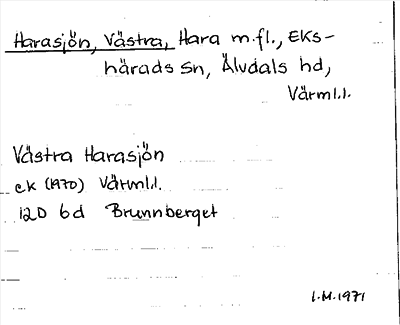 Harasjön, Västra, Hara m.fl., Eks-
härads sn, Älvdals hd,
Värml.l.
Västra Harasjön
ek (1970) Värml.l.
12D 6d Brunnberget
L.M. 1971